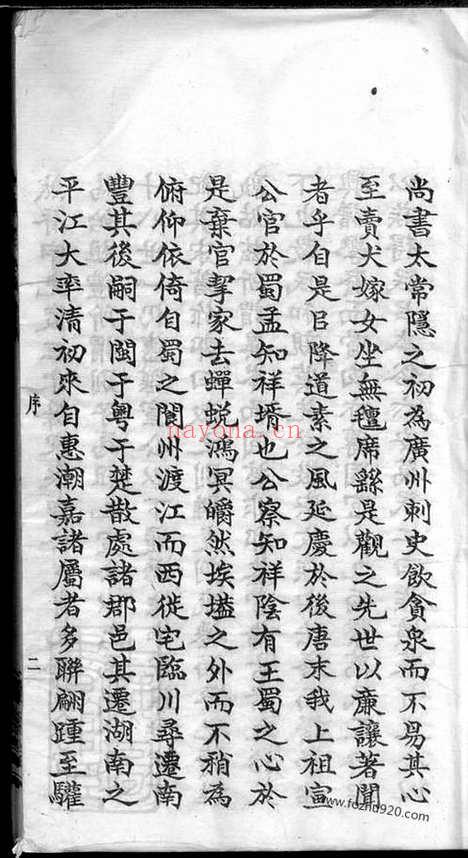 尚書太常隱之初為廣州刺史飲貪泉而不易其心
至賣犬嫁女坐無氊席繇是觀之先世以廉讓著聞
者乎自是㠯降道素之風延慶於後唐末我上祖宣
公官於蜀孟知祥壻也公察知祥陰有王蜀之心於
是棄官挈家去蟬蛻鴻冥皭然埃壒之外而不稍為
俯仰依倚自蜀之閬州渡江而西徙宅臨川尋遷南
豐其後嗣于閩于粵于楚散處諸郡邑其遷湖南之
平江大率清初來自惠潮嘉諸屬者多聯翩踵至驩
序
二
nayona.cn
www.fozhu920.com